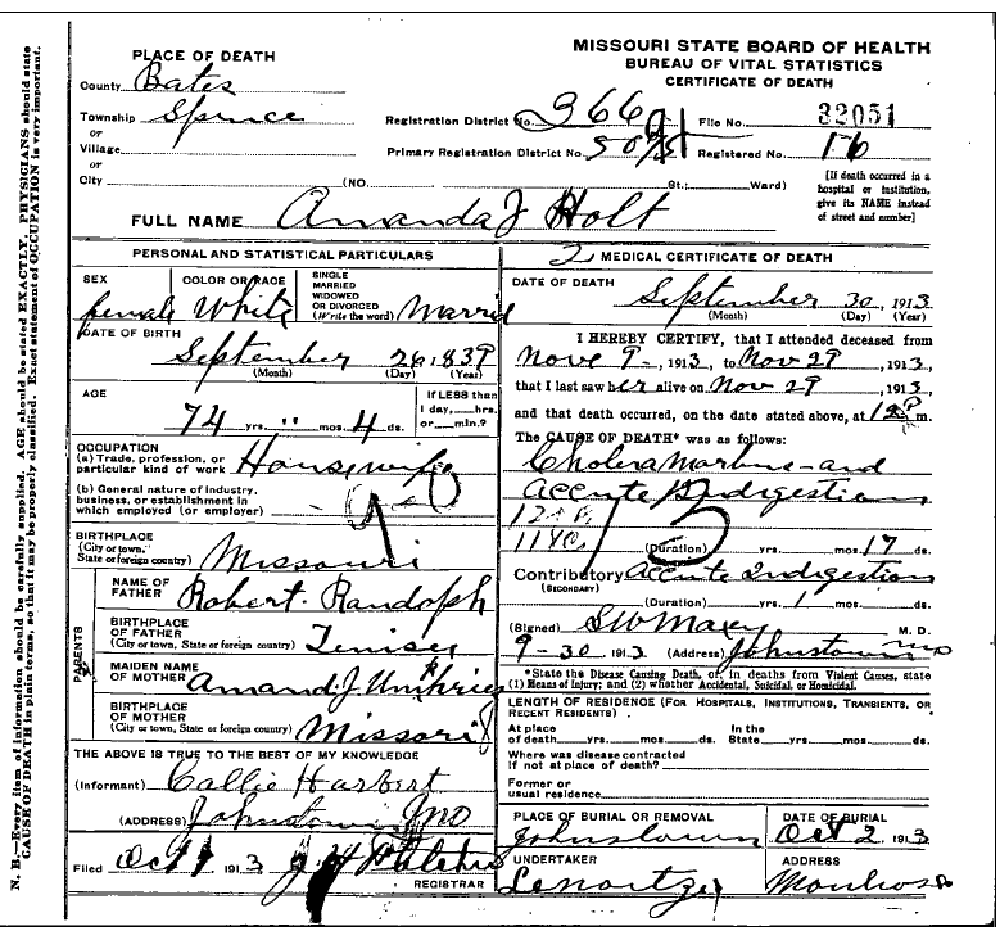 MISSOURI STATE BOARD OF HEALTH
BUREAU OF VITAL STATISTICS
CERTIFICATE OF DEATH
PLACE OF DEATH
County Bates
Township Spruce
or
Village
or
City (NO. St.; Ward)
Registration District No. 366 File No. 32051
Primary Registration District No. Registered No. 16
[If death occurred in a
hospital or institution,
give its NAME instead
of street and number]
FULL NAME Amanda J Holt
PERSONAL AND STATISTICAL PARTICULARS
SEX female
COLOR OR RACE White
SINGLE
MARRIED
WIDOWED
OR DIVORCED
(Write the word) Married
DATE OF BIRTH
September 26, 1839
(Month) (Day) (Year)
AGE
74 yrs. " mos. 4 ds.
If LESS than
1 day, hrs.
or min.?
OCCUPATION
(a) Trade, profession, or
particular kind of work Housewife
(b) General nature of industry,
business, or establishment in
which employed (or employer)
BIRTHPLACE
(City or town,
State or foreign country) Missouri
PARENTS
NAME OF
FATHER Robert. Randolph
BIRTHPLACE
OF FATHER
(City or town, State or foreign country)
MAIDEN NAME
OF MOTHER Amand. J. Umphries
BIRTHPLACE
OF MOTHER
(City or town, State or foreign country) Missori
THE ABOVE IS TRUE TO THE BEST OF MY KNOWLEDGE
(Informant) Callie Harbert
(ADDRESS) Johnstown Mo
Filed Oct 1 1913
REGISTRAR
2 MEDICAL CERTIFICATE OF DEATH
DATE OF DEATH
September 30, 1913
(Month) (Day) (Year)
I HEREBY CERTIFY, that I attended deceased from
Nove 9-, 1913, to Nov 29, 1913,
that I last saw her alive on Nov 29, 1913,
and that death occurred, on the date stated above, at m.
The CAUSE OF DEATH* was as follows:
Cholera Morbus and
Accute Indigestion
(Duration) yrs. mos. 17 ds.
Contributory Accute Indigestion
(SECONDARY)
(Duration) yrs. 1 mos. ds.
(Signed) SW Maxey M. D.
9-30 1913 (Address) Johnstown Mo
*State the Disease Causing Death, or, in deaths from Violent Causes, state
(1) Means of Injury; and (2) whether Accidental, Suicidal, or Homicidal.
LENGTH OF RESIDENCE (FOR HOSPITALS, INSTITUTIONS, TRANSIENTS, OR
RECENT RESIDENTS)
At place
of death yrs. mos. ds.
In the
State yrs. mos. ds.
Where was disease contracted
If not at place of death?
Former or
usual residence
PLACE OF BURIAL OR REMOVAL
Johnstown
DATE OF BURIAL
Oct 2 1913
UNDERTAKER
ADDRESS
N. B.—Every item of information should be carefully supplied. AGE should be stated EXACTLY. PHYSICIANS should state
CAUSE OF DEATH in plain terms, so that it may be properly classified. Exact statement of OCCUPATION is very important.